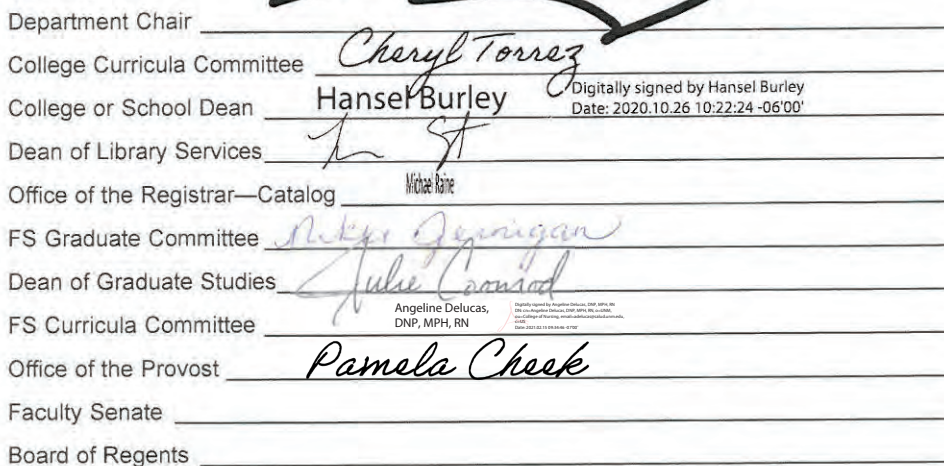 Department Chair
College Curricula Committee Cheryl Torrez
College or School Dean Hansel Burley Digitally signed by Hansel Burley
Date: 2020.10.26 10:22:24 -06'00'
Dean of Library Services
Office of the Registrar—Catalog Michael Raine
FS Graduate Committee Jernigan
Dean of Graduate Studies Julie Coonrod
Angeline Delucas,
DNP, MPH, RN
Digitally signed by Angeline Delucas, DNP, MPH, RN
FS Curricula Committee
Office of the Provost Pamela Cheek
Faculty Senate
Board of Regents